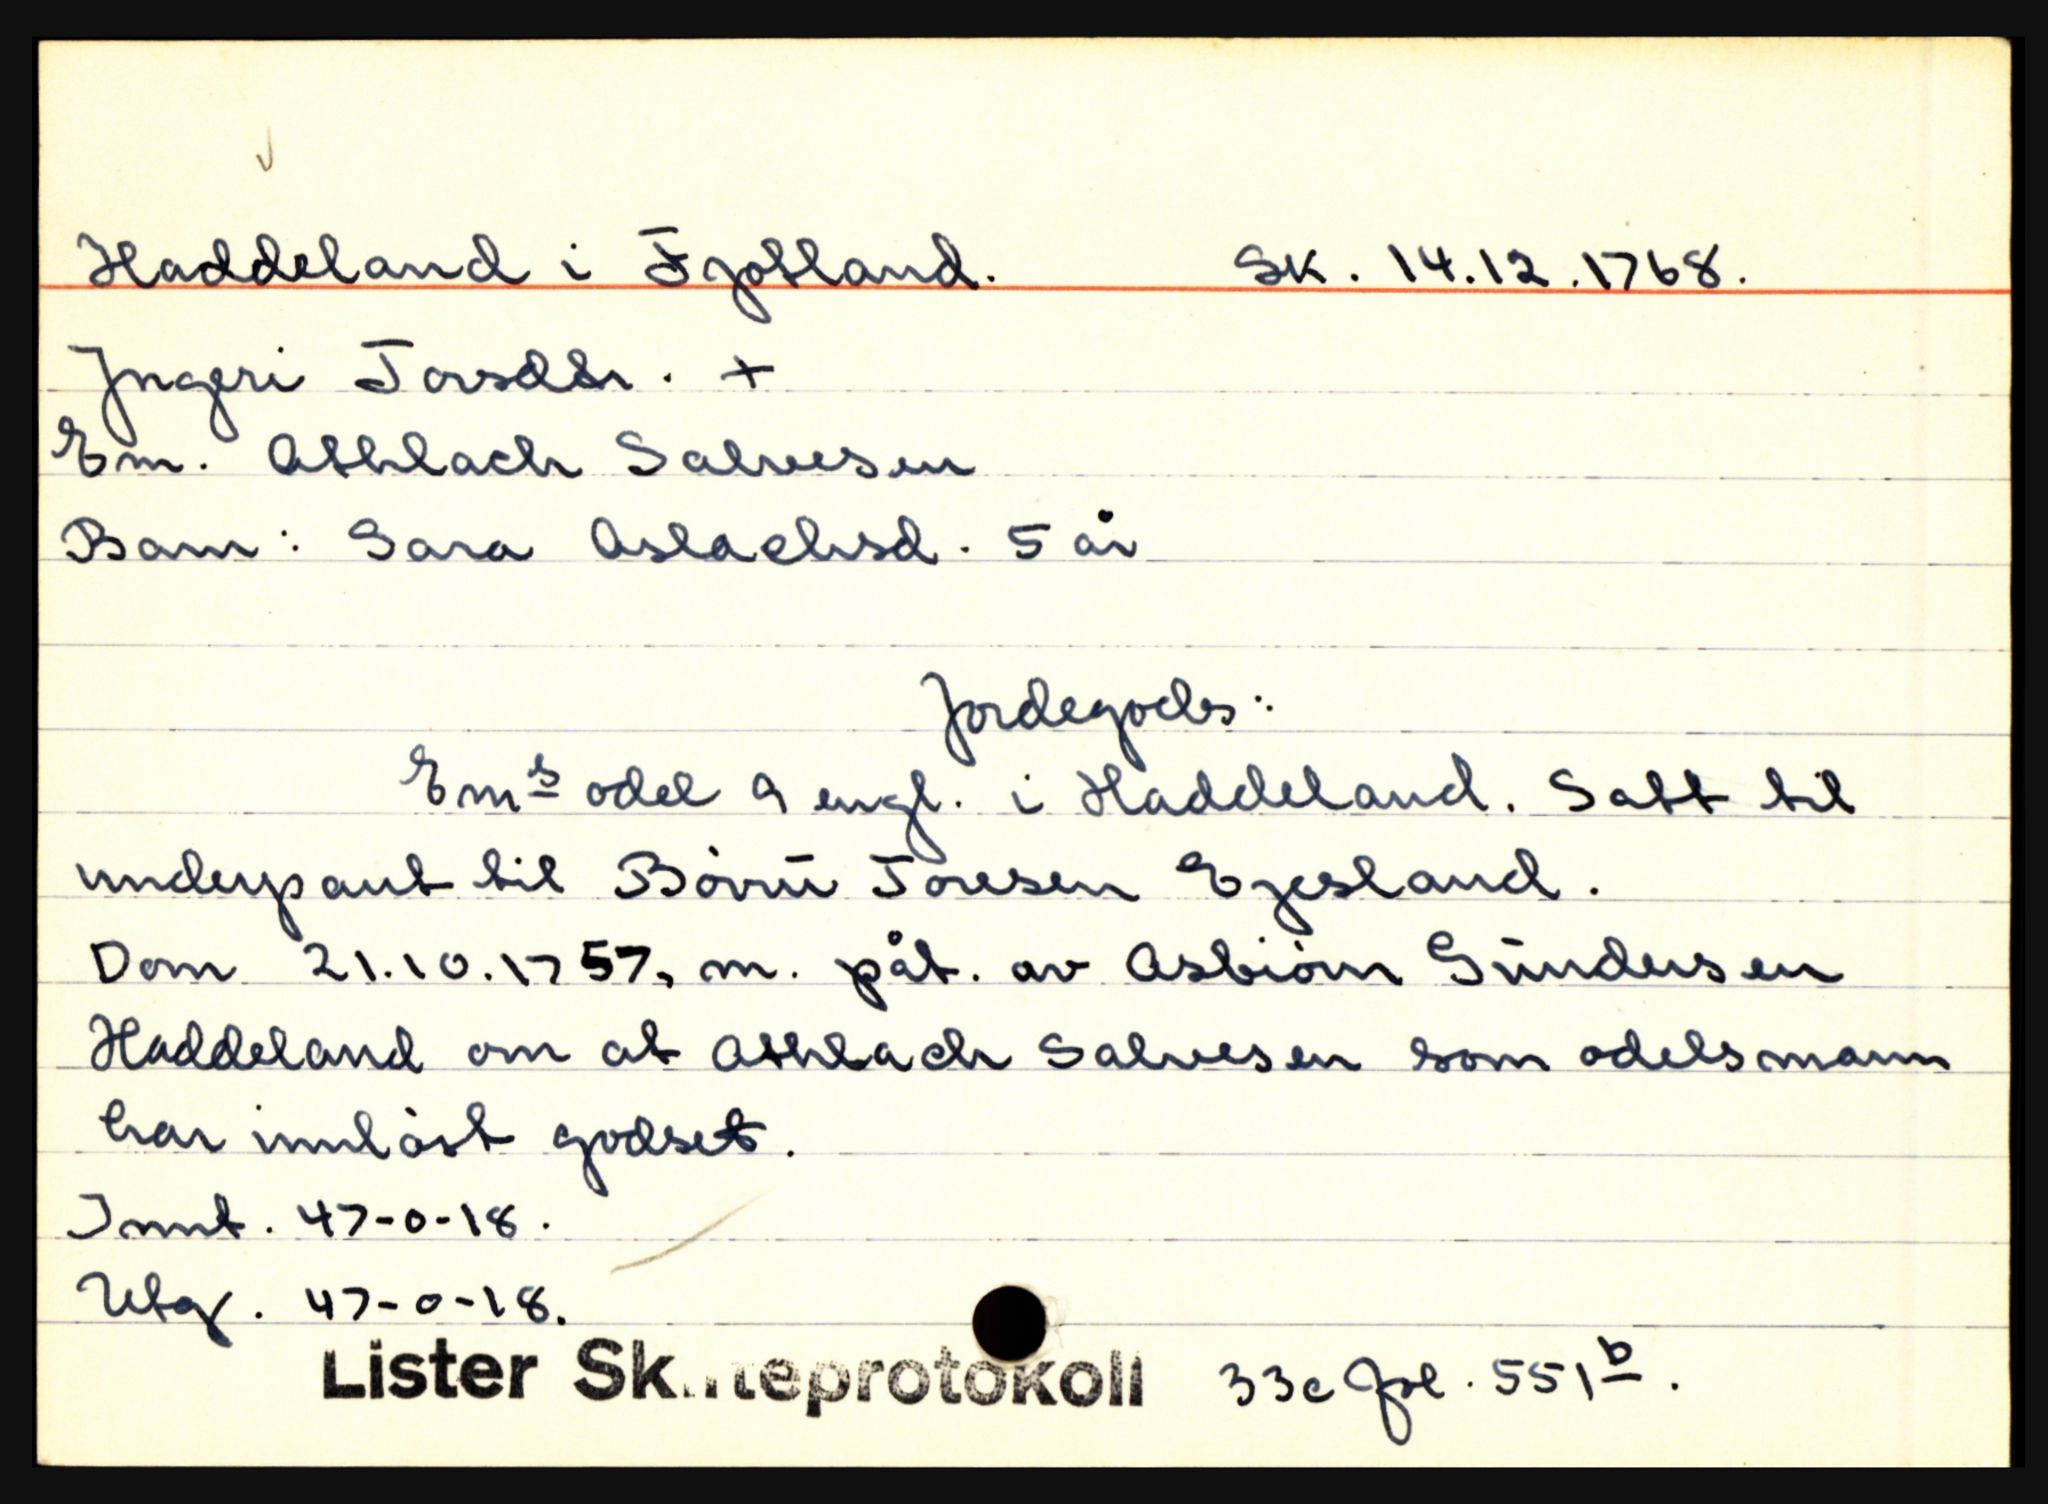 Haddeland i Fjotland. Sk. 14.12.1768.
Jngeri Torsdtr. +
Em. Athlach Salvesen
Barn: Sara Aslachsd. 5 år
Jordegods:
Ems odel 9 engl. i Haddeland. Satt til
underpant til Börrü Toresen Egesland.
Dom 21.10.1757, m. påt. av Asbiörn Gündersen
Haddeland om at Athlach Salvesen som odelsmann
har innlöst godset.
Innt. 47-0-18.
Utg. 47-0-18.
Lister Skifteprotokoll 33c fol. 551b.